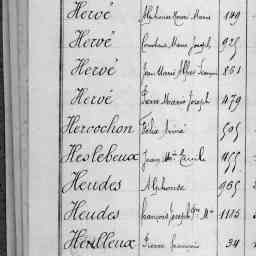 Hervé Alphonse Marie 149
Hervé Constant Marie Joseph 925
Hervé Jean Marie François 851
Hervé Pierre Marie Joseph 479
Hercochon Félix Aimé 595
Heslebeux Jean Mie 1455
Heudes Alphonse 965
Heudes François Joseph Mie 1185
Heulleux Pierre François 34